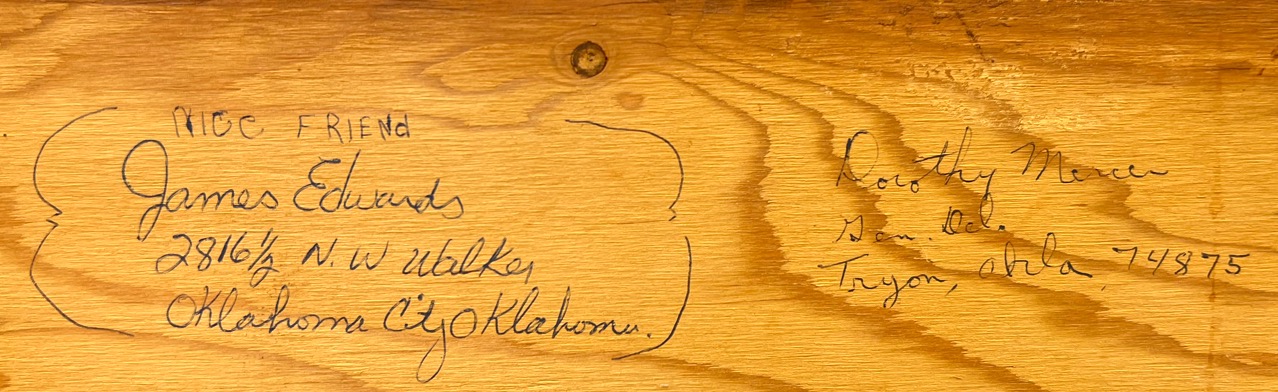 NICE FRIENd
James Edwards
2816½ N. W Walker
Oklahoma City Oklahoma.
Dorothy Mercer
Gen. Del.
Tryon, Okla. 74875